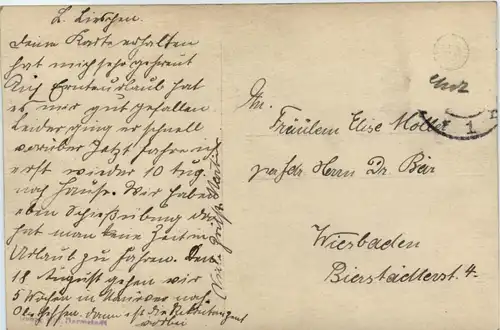 L. Lieschen.
Deine Karte erhalten
hat mich sehr gefreut
Auf Ernteurlaub hat
es mir gut gefallen.
Leider ging er schnell
vorüber Jetzt fahren
erst wieder 10 Tag.
nach Hause. Wir haben
eben Schießübung da
hat man keine Zeit in
Urlaub zu fahren. Den
18 August gehen wir
5 Wochen in Manöver nach
Oberhessen. dann ist die
vorbei
Viele Grüße Martin
An.
Fräulein Elise Moll
per Adr. Herrn Dr. Bär
Wiesbaden
Bierstadterst. 4.
1
Darmstadt